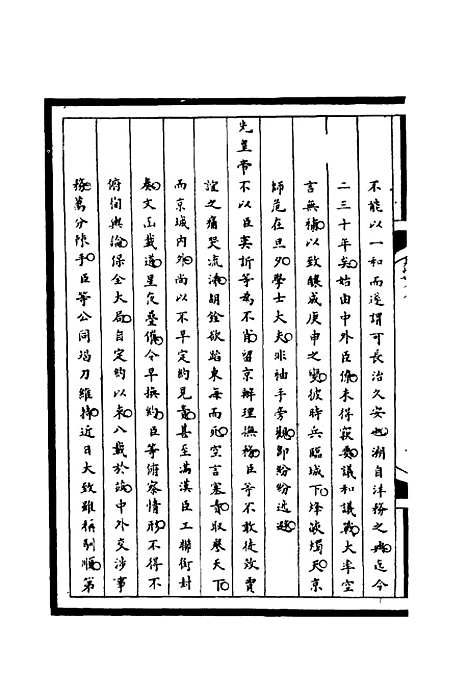 不能以一和而遂謂可長治久安也溯自洋務之興迄今
二三十年矣始由中外臣僚未得窾要議和議戰大率空
言無補以致釀成庚申之變彼時兵臨城下烽燧燭天京
師危在旦夕學士大夫非袖手旁觀即紛紛逃避
先皇帝不以臣奕訢等為不肖留京辦理撫務臣等不敢徒效賈
誼之痛哭流涕胡銓欲蹈東海而死空言塞責取譽天下
而京城內外尚以不早定約見責甚至滿漢臣工聯銜封
奏文函載道星夜疊催令早換約臣等俯察情形不得不
俯徇輿論保全大局自定約以來八載於茲中外交涉事
務萬分棘手臣等公同竭力維持近日大致雖稱馴順第